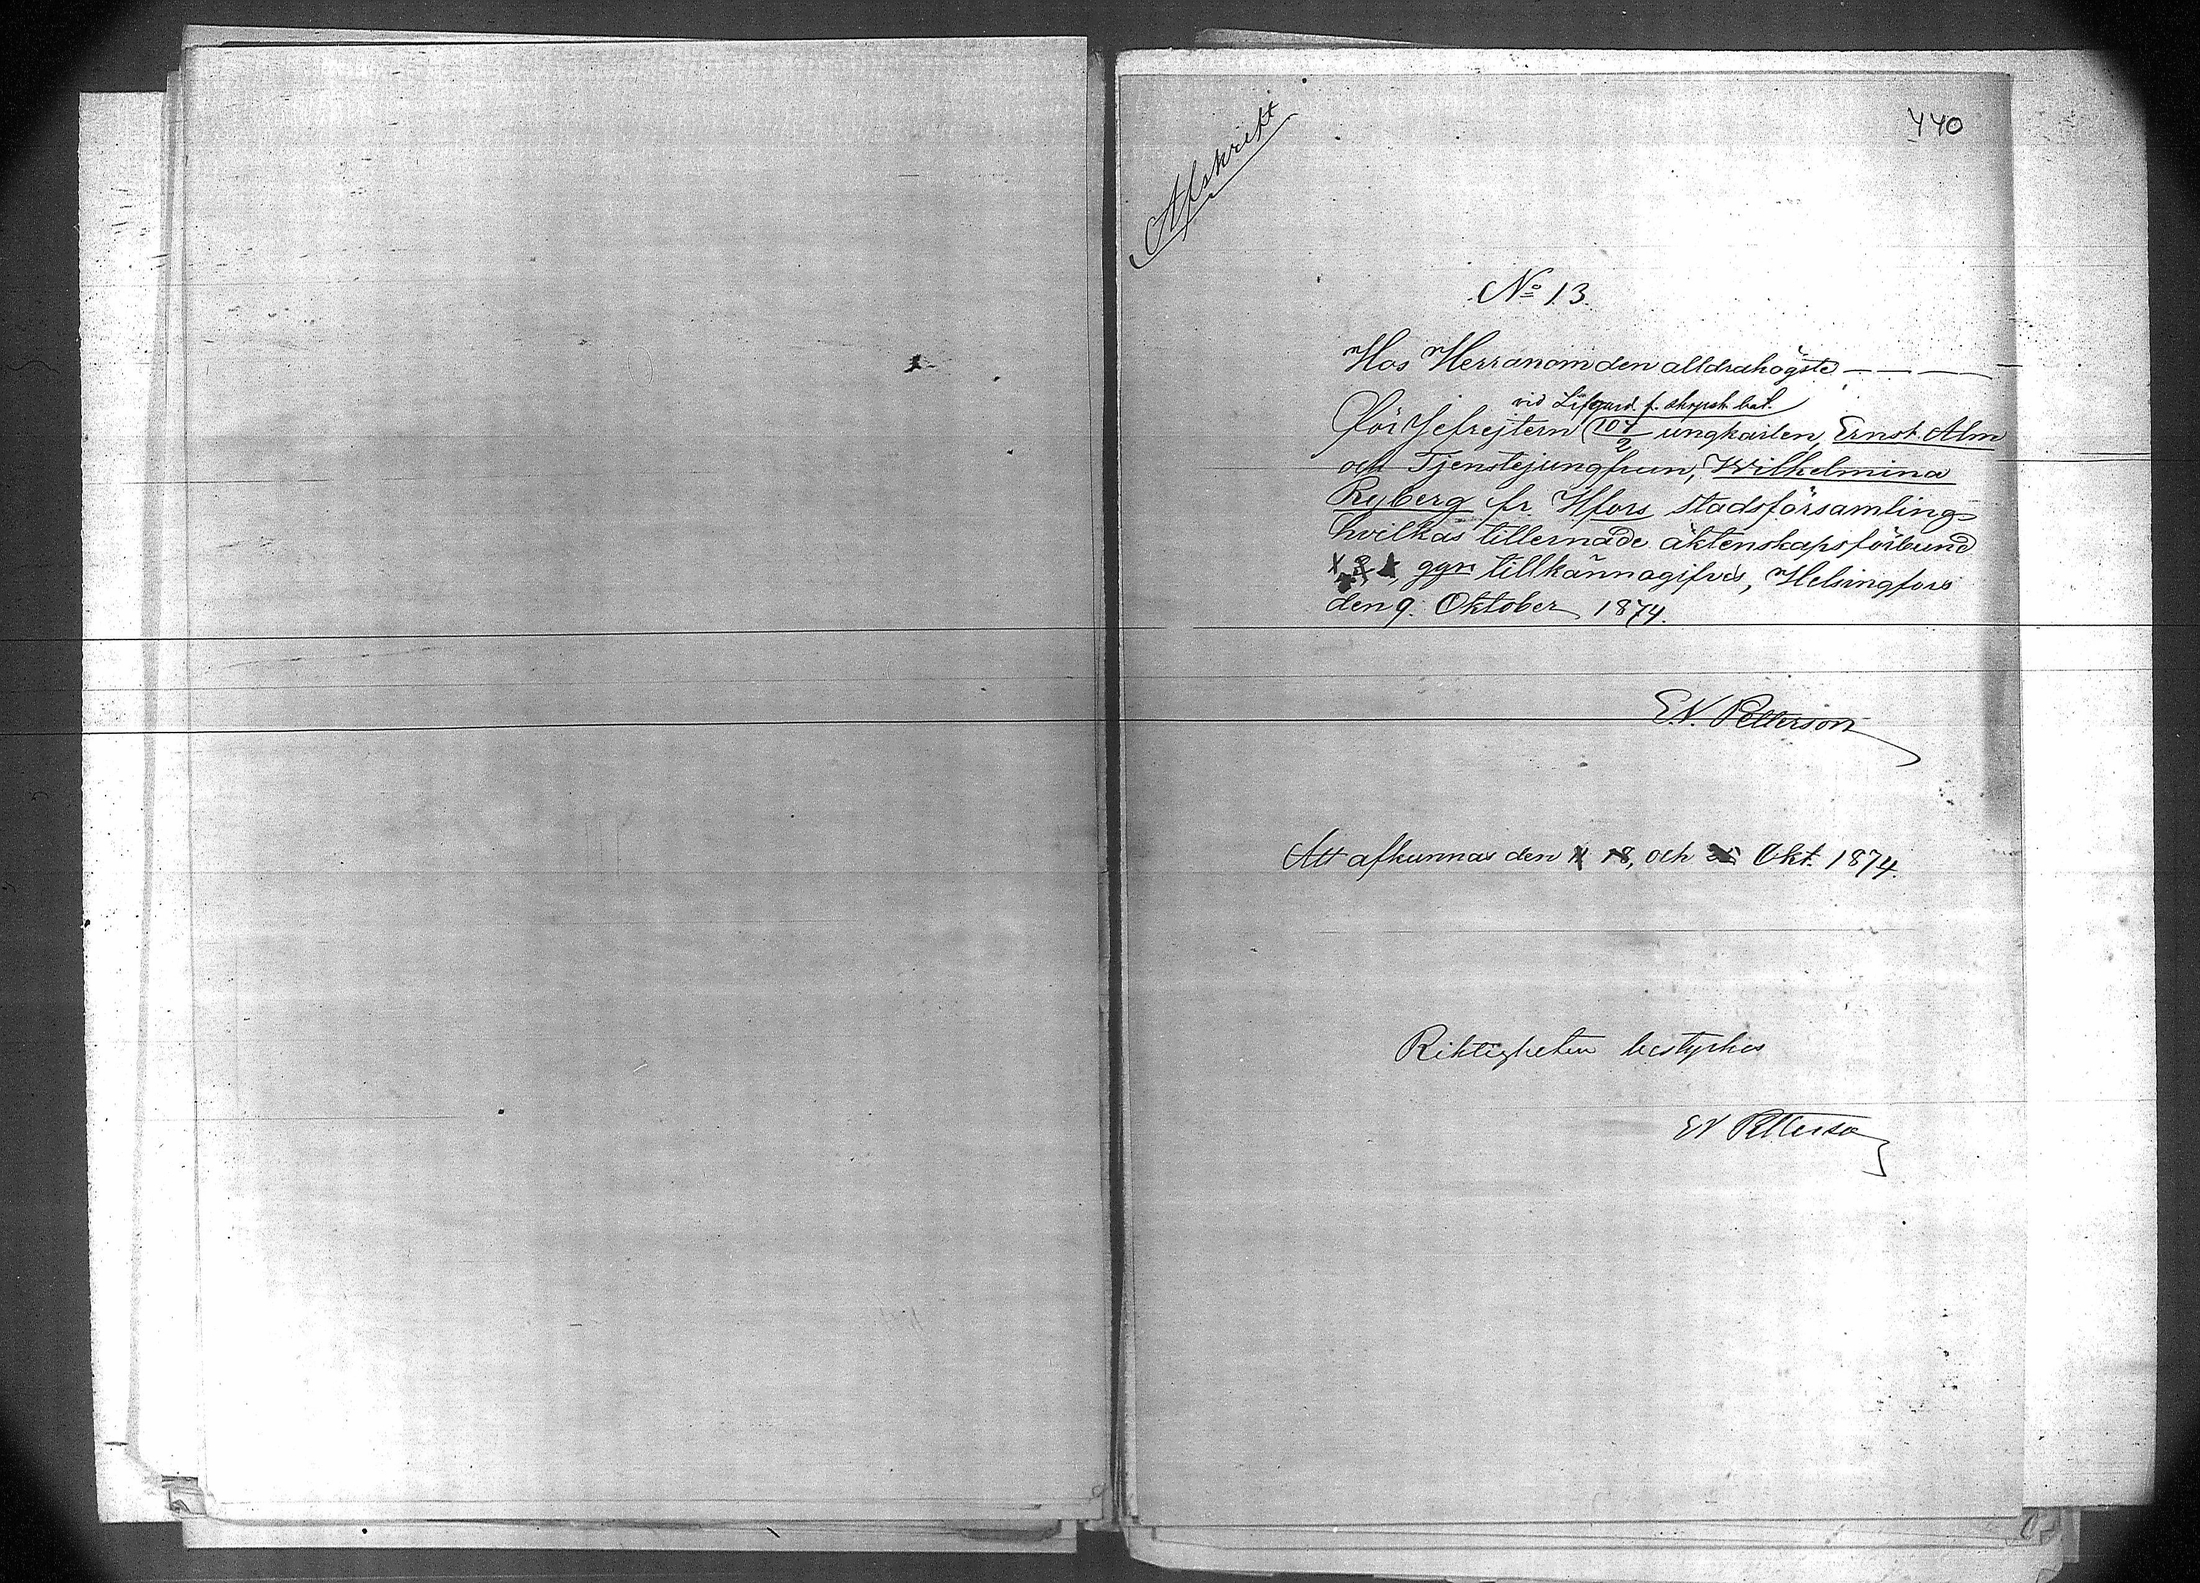 440
Afskrift
No 13.
Hos Herranom den alldrahögste — — —
vid Lifgard. f. skrpsk. bat.
för Gefrejtern (104/2 ungkarlen, Ernst Alm
och Tjenstejungfrun, Wilhelmina
Ryberg fr. Hfors stadsförsamling
hvilkas tillernade äktenskapsförbund
1, 2, ggn tillkännagifves, Helsingfors
den 9. Oktober 1874.
E.N. Petterson
Att afkunnas den 11 18, och 25 Okt. 1874.
Riktigheten bestyrkes
EN Petterson